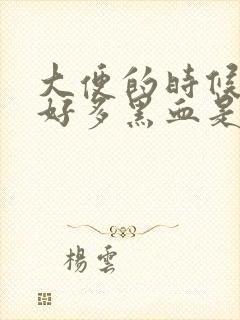 大便的時候
好多黑血是
楊雲